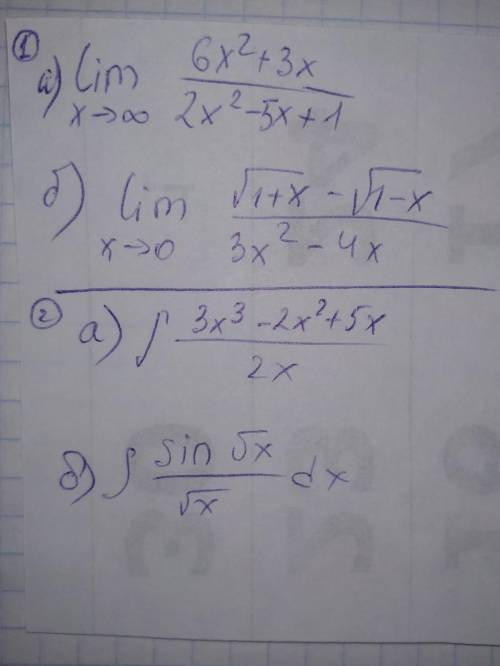 ① а) lim x→∞ (6x²+3x)/(2x²-5x+1)
б) lim x→0 (√(1+x) - √(1-x))/(3x²-4x)
② а) ∫ (3x³-2x²+5x)/(2x)
б) ∫ (sin √x)/(√x) dx